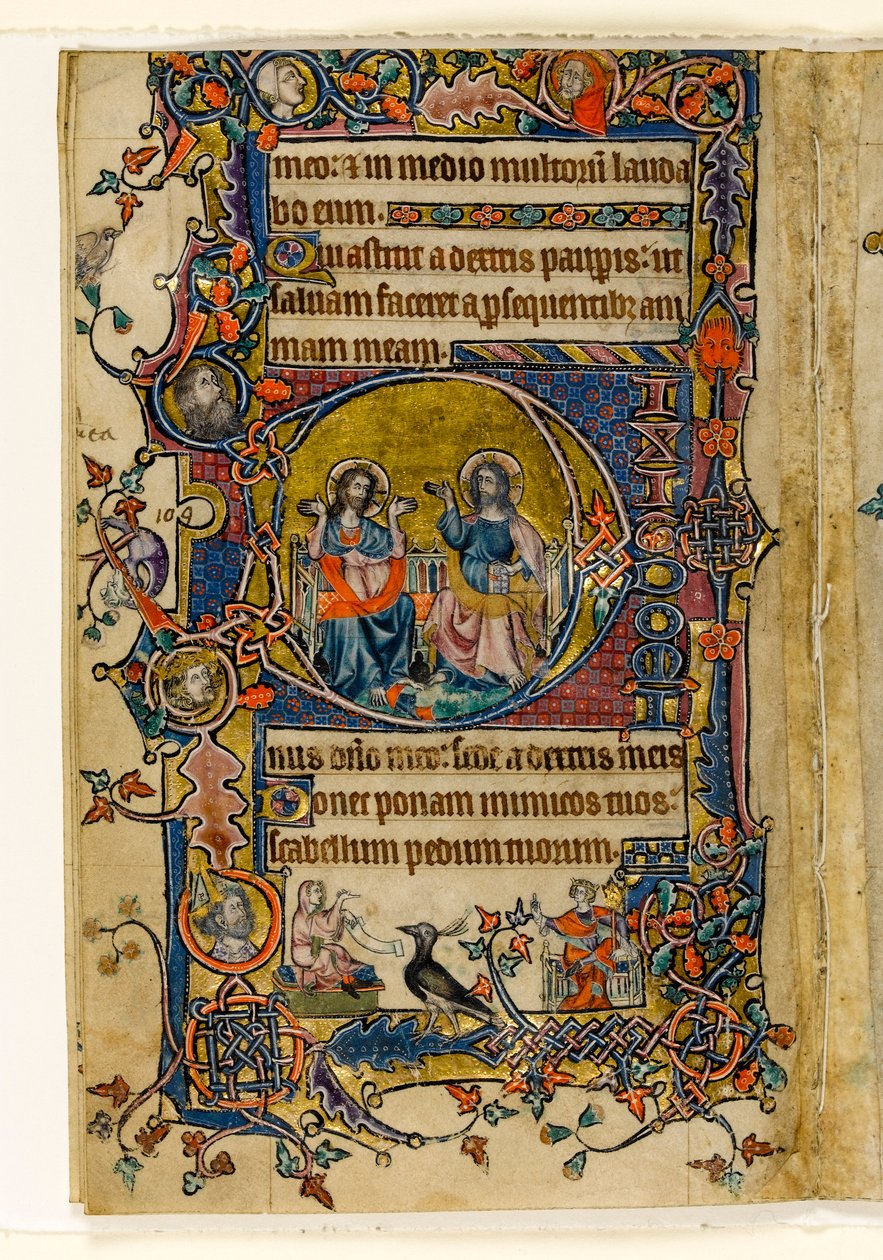 meo: & in medio multorū lauda
bo eum.
Qui astitit a dextris paup̲is: ut
saluam faceret a p̲sequentibꝫ ani
mam meam.
109
DIXIT DOMI
nus dn̄o meo: sede a dextris meis
Donec ponam inimicos tuos:
scabellum pedum tuorum.